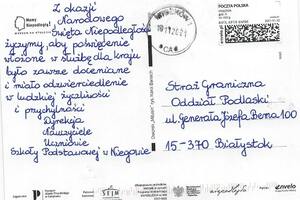 Mamy Niepodległą!
Z okazji
Narodowego
Święta Niepodległości
życzymy, aby poświęcenie
włożone w służbę dla kraju
było zawsze doceniane
i miało odzwierciedlenie
w ludzkiej życzliwości
i przychylności
Dyrekcja
Nauczyciele
Uczniowie
Szkoły Podstawowej w Niegowie
POCZTA POLSKA
Straż Graniczna
Oddział Podlaski
ul. Generała Józefa Bema 100
15-370 Białystok
SEJM
niepodległa
envelo